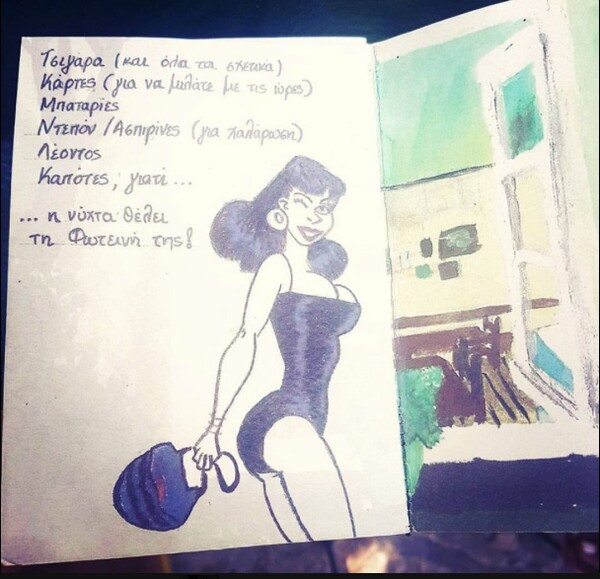 Τσιγάρα (και όλα τα σχετικά)
Κάρτες (για να μιλάτε με τις ώρες)
Μπαταρίες
Ντεπόν / Ασπιρίνες (για χαλάρωση)
Λέοντος
Καπότες, γιατί...
... η νύχτα θέλει
τη Φωτεινή της!